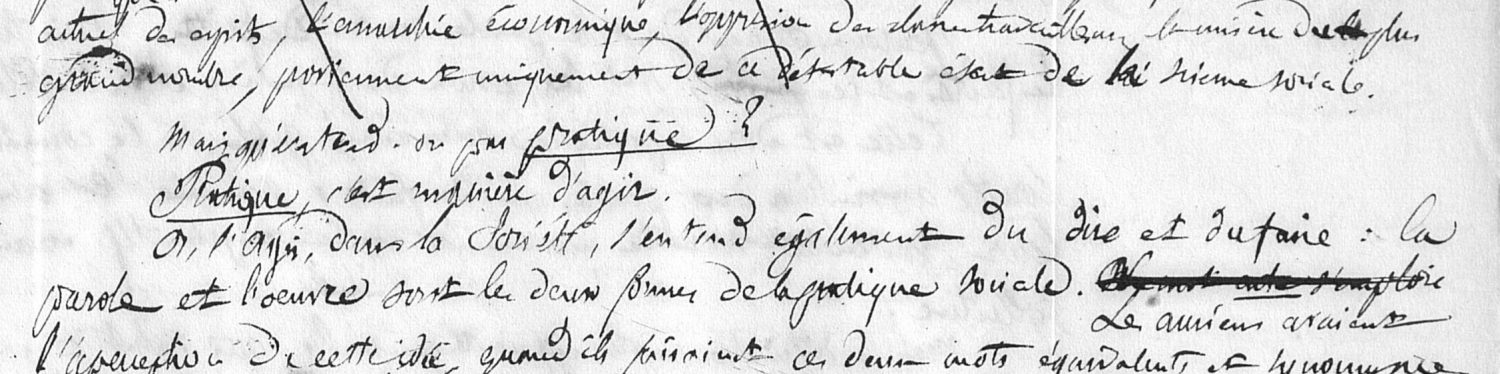 actuel des esprits, l'anarchie économique, l'oppression des classes travailleuses, la misère du plus
grand nombre, proviennent uniquement de ce détestable état de la science sociale.
Mais qu'entend-on par pratique ?
Pratique, c'est manière d'agir.
Or, l'agir, dans la Société, s'entend également du dire et du faire : la
parole et l'oeuvre sont les deux formes de la pratique sociale. s'emploie
Les anciens avaient
l'aperception de cette idée, quand ils faisaient ces deux mots équivalents et synonymes